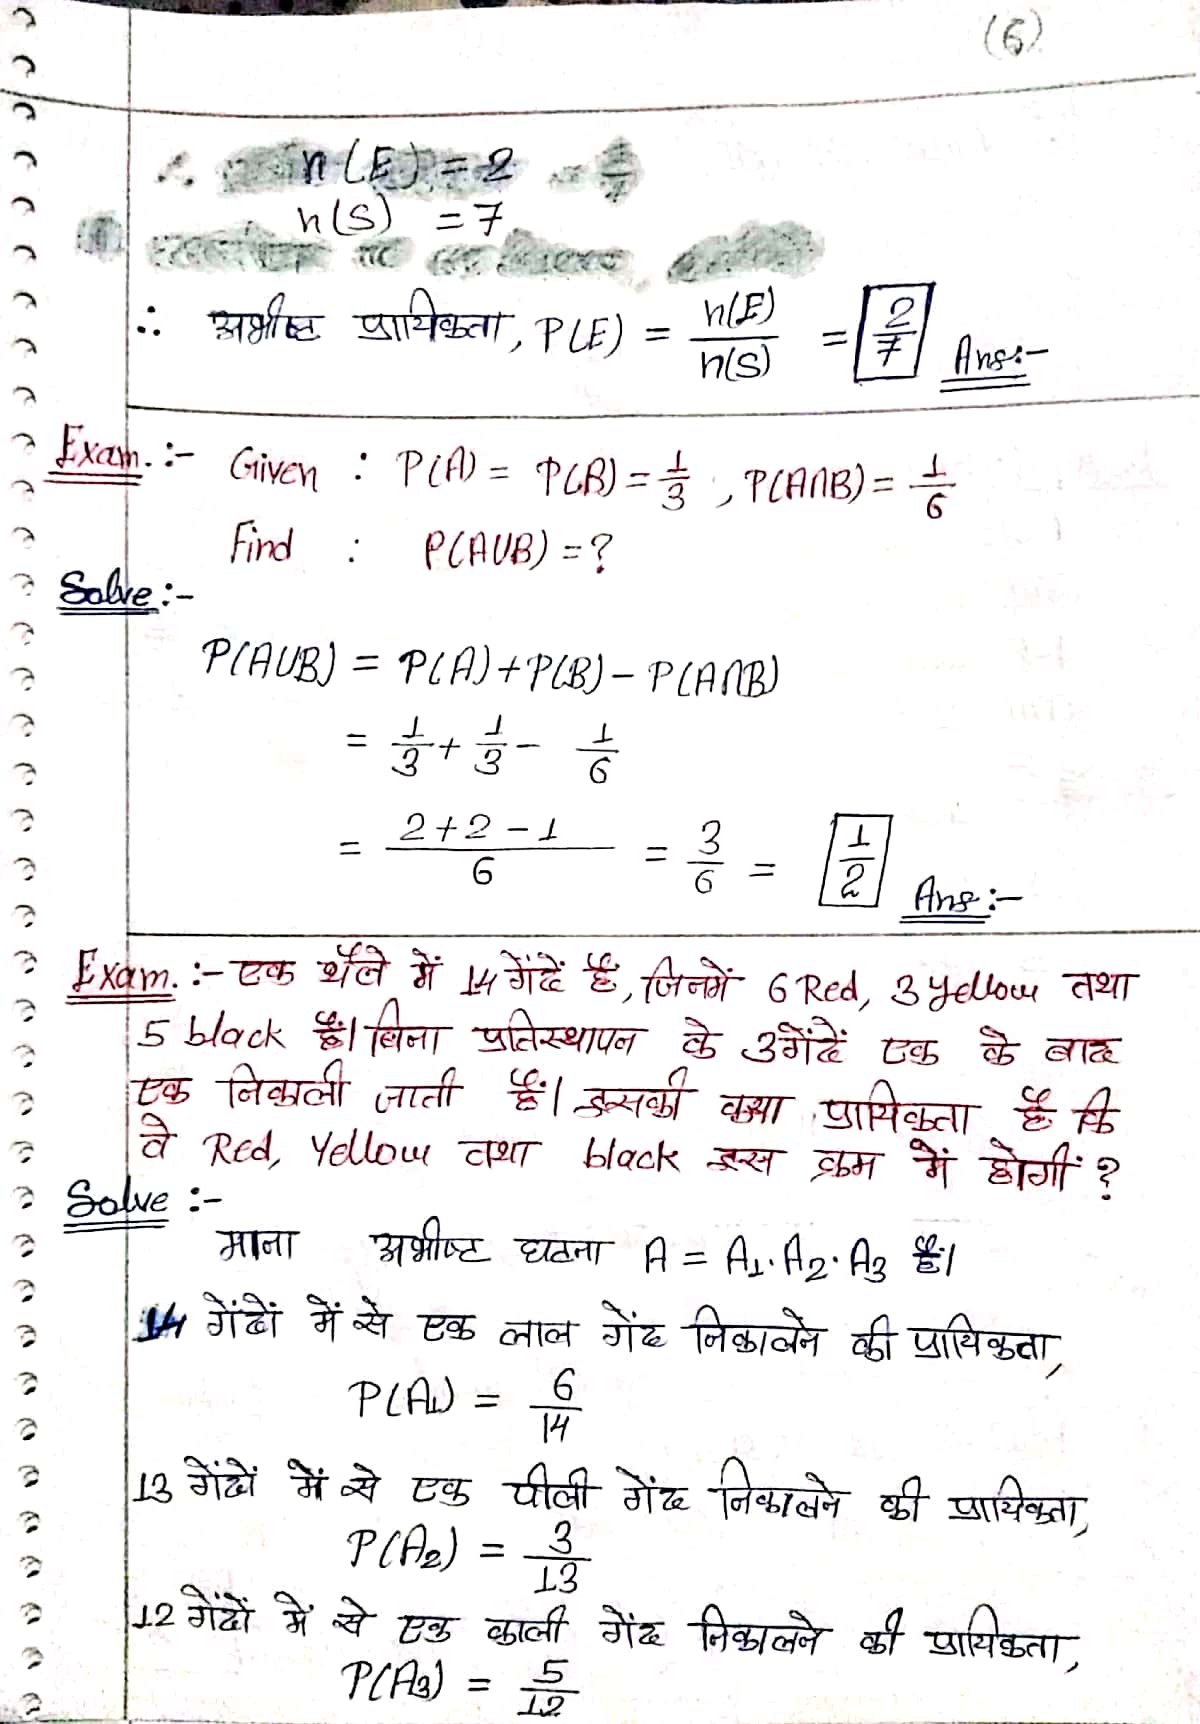 (6)
∴ n(E) = 2
n(S) = 7
∴ अभीष्ट प्रायिकता, P(E) = n(E)/n(S) = 2/7 Ans:-
Exam. :- Given : P(A) = P(B) = 1/3, P(A∩B) = 1/6
Find : P(A∪B) = ?
Solve :-
P(A∪B) = P(A) + P(B) - P(A∩B)
= 1/3 + 1/3 - 1/6
= (2+2-1)/6 = 3/6 = 1/2 Ans:-
Exam. :- एक थैले में 14 गेंदें हैं, जिनमें 6 Red, 3 Yellow तथा
5 black हैं। बिना प्रतिस्थापन के 3 गेंदें एक के बाद
एक निकाली जाती हैं। इसकी क्या प्रायिकता है कि
वे Red, Yellow तथा black इस क्रम में होगीं ?
Solve :-
माना अभीष्ट घटना A = A₁·A₂·A₃ है।
14 गेंदों में से एक लाल गेंद निकालने की प्रायिकता,
P(A₁) = 6/14
13 गेंदों में से एक पीली गेंद निकालने की प्रायिकता,
P(A₂) = 3/13
12 गेंदों में से एक काली गेंद निकालने की प्रायिकता,
P(A₃) = 5/12